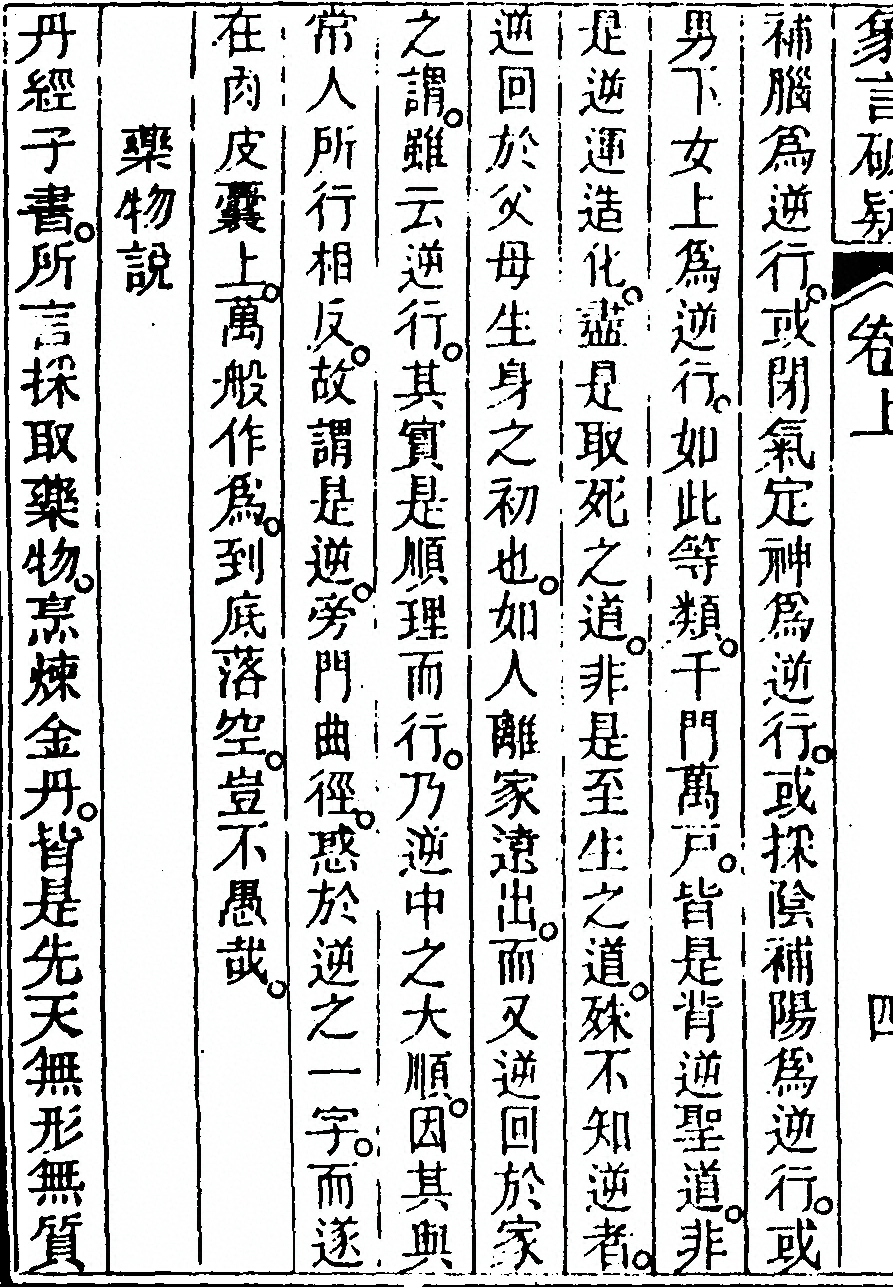 象言破疑 卷上 四
補腦爲逆行。或閉氣定神爲逆行。或採陰補陽爲逆行。或
男下女上爲逆行。如此等類。千門萬戸。皆是背逆聖道。非
是逆運造化。盡是取死之道。非是至生之道。殊不知逆者。
逆回於父母生身之初也。如人離家遠出。而又逆回於家
之謂。雖云逆行。其實是順理而行。乃逆中之大順。因其與
常人所行相反。故謂是逆。旁門曲徑。惑於逆之一字。而遂
在肉皮囊上。萬般作爲。到底落空。豈不愚哉。
藥物說
丹經子書。所言採取藥物。烹煉金丹。皆是先天無形無質